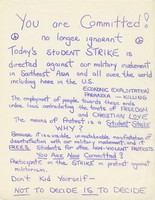 You are Committed!
no longer ignorant
Today's STUDENT STRIKE is
directed against our military involvement
in Southeast Asia and all over the world
including here in the U.S.
ECONOMIC EXPLOITATION
PARANOIA — KILLING
The employment of people towards these ends
under laws contradicting the tenets of FREEDOM
and CHRISTIAN LOVE
The means of Protest is a Student Strike
WHY?
Because it is a visible, unmistakable manifestation of
dissatisfaction with our military involvement; and it
FREES Students for other NON-VIOLENT PROTESTS
You Are Now Committed?
Participate in the STRIKE in protest against
militarism.
Don't Kid Yourself—
NOT TO DECIDE IS TO DECIDE